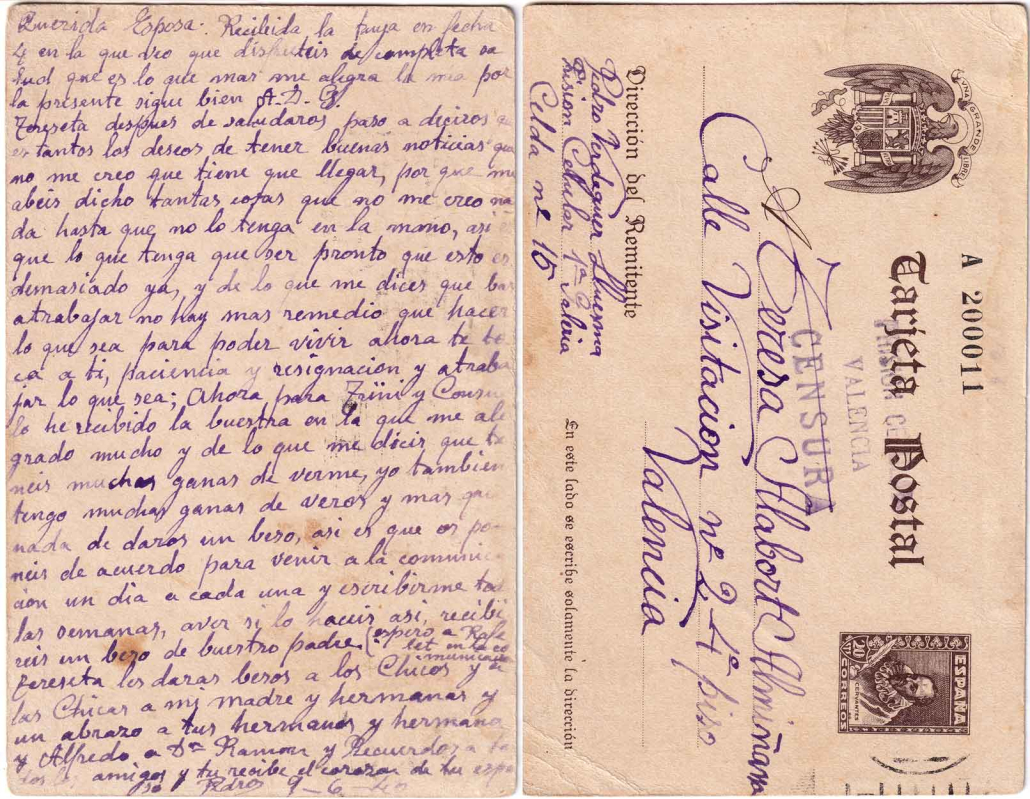 Querida Esposa: Recibida la tuya en fecha
4 en la que veo que disfruteis de completa sa
lud que es lo que mas me alegra la mia por
la presente sigue bien A. D. G.
Tereseta despues de saludaros paso a deciros q
es tantos los deseos de tener buenas noticias que
no me creo que tiene que llegar, por que me
abeis dicho tantas cosas que no me creo na
da hasta que no lo tenga en la mano, asi es
que lo que tenga que ser pronto que esto es
demasiado ya, y de lo que me dices que bas
atrabajar no hay mas remedio que hacer
lo que sea para poder vivir ahora te to
ca a ti, paciencia y resignación y atraba
jar lo que sea; Ahora para Trini y Consue
lo he recibido la buestra en la que me ale
grado mucho y de lo que me decis que te
neis muchas ganas de verme, yo tambien
tengo muchas ganas de veros y mas que
nada de daros un beso, asi es que os po
neis de acuerdo para venir a la comunica
cion un dia a cada una y escribirme to
las semanas, aver si lo haceis asi, recibi
reis un beso de buestro padre. (espero a Rafe
let en la co
munica
Tereseta les daras besos a los Chicos y a
las Chicas a mi madre y hermanas y
un abrazo a tus hermanos y hermana
y Alfredo a Dn Ramon y Recuerdos a to
dos amigos y tu recibe el corazon de tu espo
so Pedro 9-6-40
UNA GRANDE LIBRE
A 200011
Tarjeta Postal
ESPAÑA
CERVANTES
20 CTS
CORREOS
PRISION CE
VALENCIA
CENSURA
A Teresa Alabort Almiñana
Calle Visitación nº 2-4º piso
Valencia
Dirección del Remitente
Pedro Verdeguer Lluesma
Prision Celular 1ª G Valencia
Celda nº 15
En este lado se escribe solamente la dirección